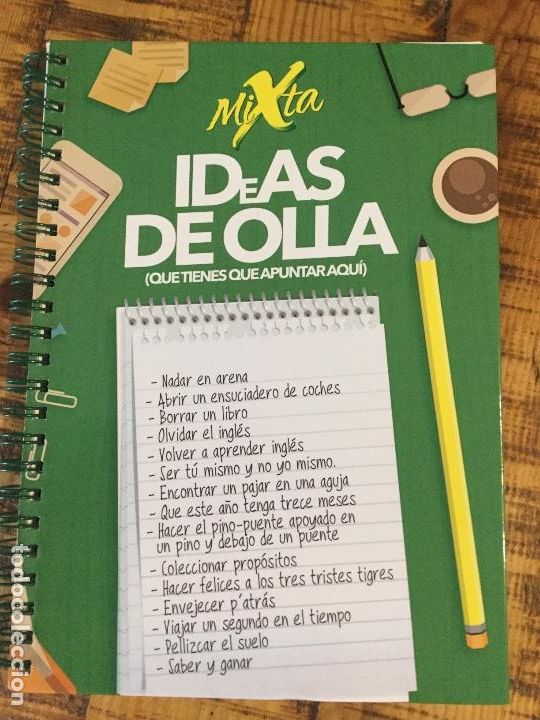 MiXta
IDeAS
DE OLLA
(QUE TIENES QUE APUNTAR AQUÍ)
- Nadar en arena
- Abrir un ensuciadero de coches
- Borrar un libro
- Olvidar el inglés
- Volver a aprender inglés
- Ser tú mismo y no yo mismo.
- Encontrar un pajar en una aguja
- Que este año tenga trece meses
- Hacer el pino-puente apoyado en
un pino y debajo de un puente
- Coleccionar propósitos
- Hacer felices a los tres tristes tigres
- Envejecer p'atrás
- Viajar un segundo en el tiempo
- Pellizcar el suelo
- Saber y ganar
todocoleccion